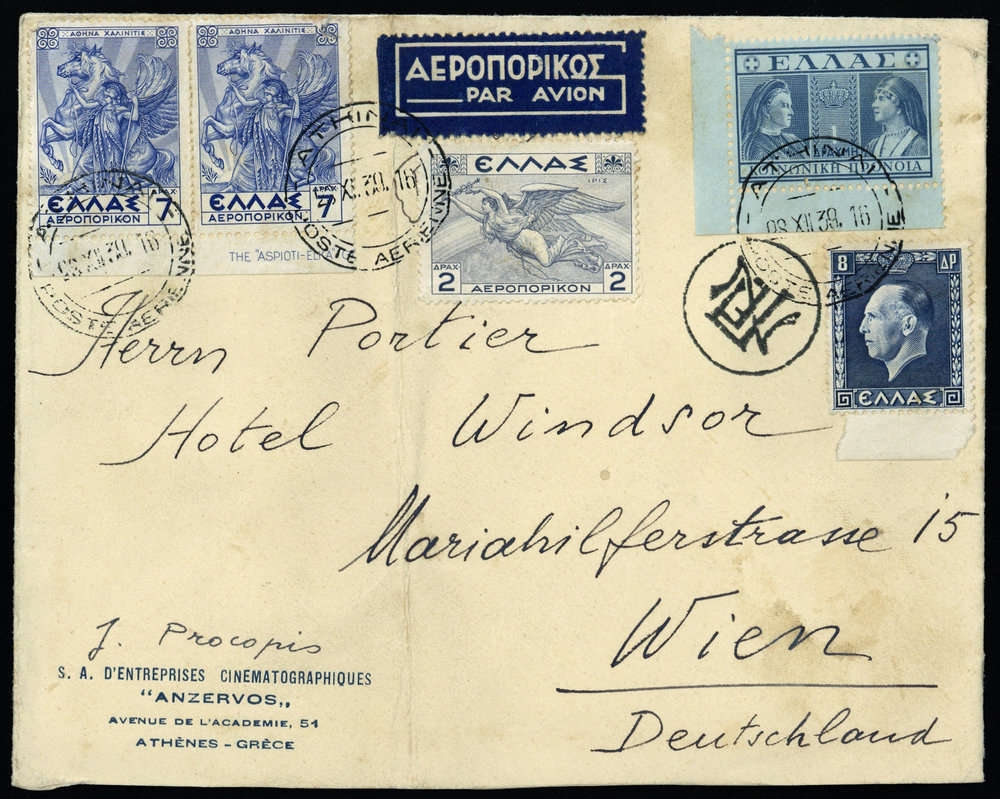 ΑΘΗΝΑ ΧΑΛΙΝΙΤΙΣ
ΔΡΑΧ
ΕΛΛΑΣ 7
ΑΕΡΟΠΟΡΙΚΟΝ
ΑΘΗΝΑ ΧΑΛΙΝΙΤΙΣ
ΔΡΑΧ
ΕΛΛΑΣ 7
ΑΕΡΟΠΟΡΙΚΟΝ
THE "ASPIOTI-ELKA
ΑΕΡΟΠΟΡΙΚΩΣ
PAR AVION
ΕΛΛΑΣ
ΙΡΙΣ
ΔΡΑΧ ΔΡΑΧ
2 2
ΑΕΡΟΠΟΡΙΚΟΝ
ΕΛΛΑΣ
1
ΔΡΑΧΜΗ
8 ΔΡ
ΕΛΛΑΣ
XII 39. 16
POSTE AERIENNE
XII 39. 16
POSTE AERIENNE
08 XII 39. 16
POSTE AERIENNE
Herrn Portier
Hotel Windsor
Mariahilferstrasse 15
Wien
Deutschland
J. Procopis
S. A. D'ENTREPRISES CINEMATOGRAPHIQUES
"ANZERVOS„
AVENUE DE L'ACADEMIE, 51
ATHÈNES - GRÈCE